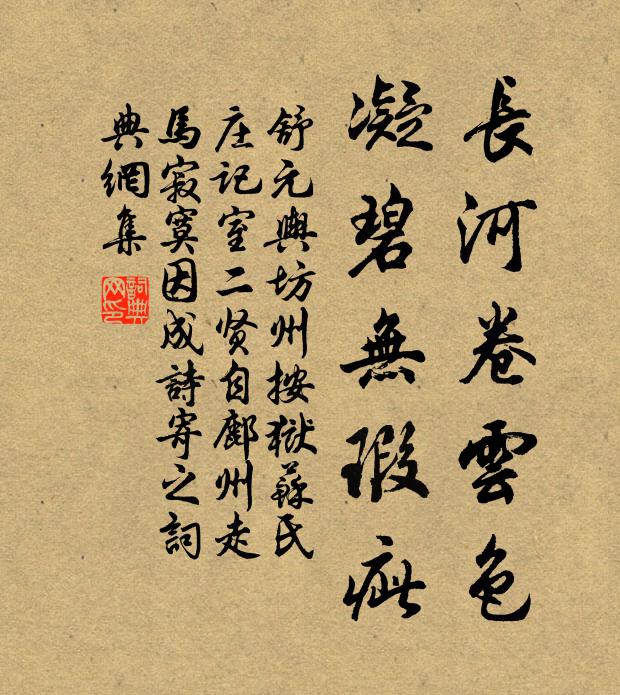 長河卷雲色
凝碧無瑕疵
舒元輿坊州按獄蘇氏
庄記室二贤自鄜州走
馬寂寞因成詩寄之詞
典網集
詞典
网印